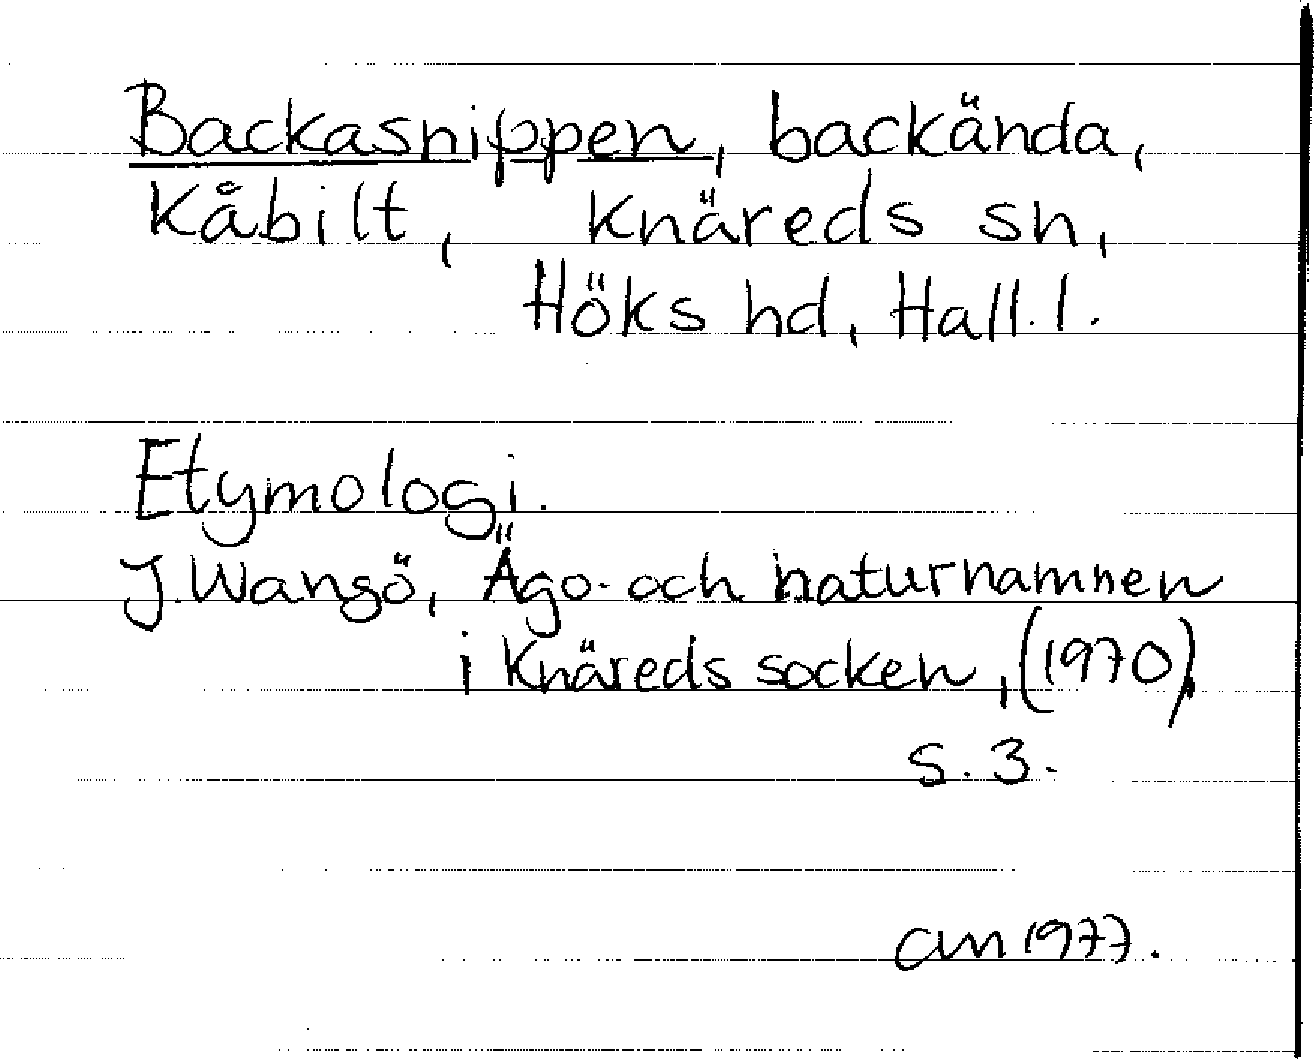 Backasnippen, backända,
Kåbilt, Knäreds sn,
Höks hd, Hall. l.
Etymologi.
J. Wangö, Ägo- och naturnamnen
i Knäreds socken, (1970)
s. 3.
am 1977.